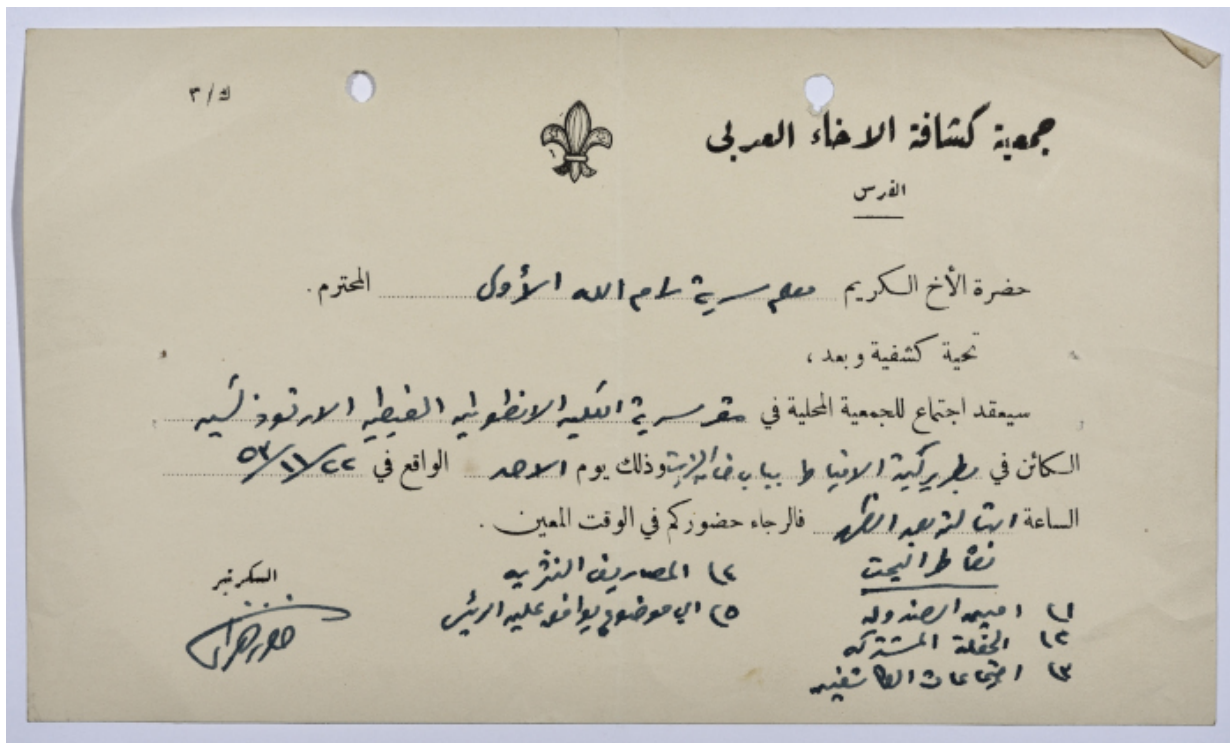 ك/٣
جمعية كشافة الاخاء العربي
القدس
حضرة الأخ الكريم معلم سرية رام الله الأولى المحترم.
تحية كشفية وبعد ،
سيعقد اجتماع للجمعية المحلية في مقر سرية الكلية الانطونية القبطية الارثوذكسية
الكائن في بطريركية الاقباط بباب خان الزيت وذلك يوم الاحد الواقع في ٢٢/١١/٥٣
الساعة الثالثة بعد الظهر فالرجاء حضوركم في الوقت المعين .
نقاط البحث
السكرتير
١) امين الصندوق
٢) الحفلة المشتركة
٣) اجتماعات الكاشفين
٤) المصاريف النثرية
٥) اي موضوع يوافق عليه الرئيس